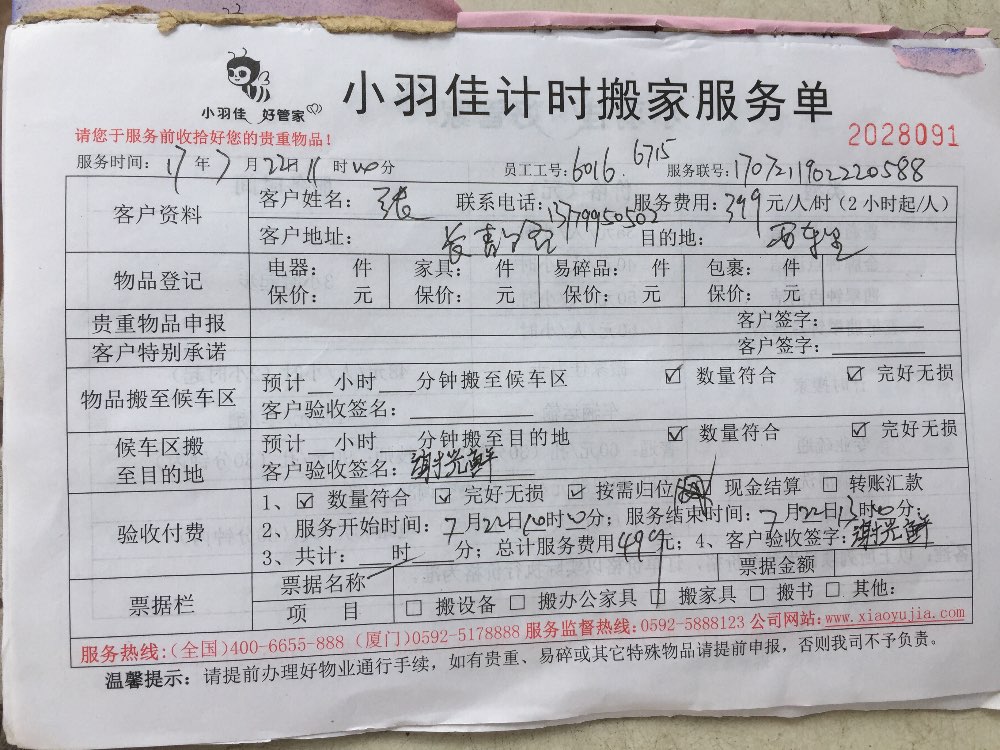 小羽佳 好管家
小羽佳计时搬家服务单
2028091
请您于服务前收拾好您的贵重物品！
服务时间：17年7月22日11时00分 员工工号：6016. 6715 服务联号：170721190220588
客户资料 客户姓名：张 联系电话：13799950502 服务费用：399元/人/时（2小时起/人）
客户地址： 目的地：
物品登记 电器： 件 家具： 件 易碎品： 件 包裹： 件
保价： 元 保价： 元 保价： 元 保价： 元
贵重物品申报 客户签字：
客户特别承诺 客户签字：
物品搬至候车区 预计__小时 分钟搬至候车区 ☑ 数量符合 ☑ 完好无损
客户验收签名：
候车区搬至目的地 预计__小时 分钟搬至目的地 ☑ 数量符合 ☑ 完好无损
客户验收签名：谢光鲜
验收付费 1、☑ 数量符合 ☑ 完好无损 ☑ 按需归位 现金结算 □ 转账汇款
2、服务开始时间：7月22日10时00分；服务结束时间：7月22日13时00分
3、共计：__时 分；总计服务费用499元；4、客户验收签字：谢光鲜
票据栏 票据名称 票据金额
项 目 □ 搬设备 □ 搬办公家具 □ 搬家具 □ 搬书 □ 其他：
服务热线：（全国）400-6655-888（厦门）0592-5178888 服务监督热线：0592-5888123 公司网站：www.xiaoyujia.com
温馨提示：请提前办理好物业通行手续，如有贵重、易碎或其它特殊物品请提前申报，否则我司不予负责。